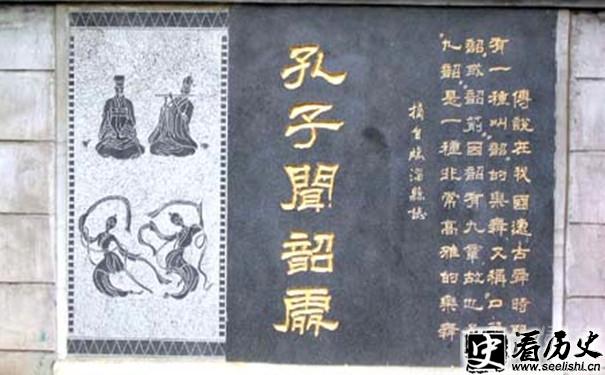 傳說在我國遠古舜時
有一種叫"韶"的樂舞又稱
韶"或"韶箾"因韶有九章故也
九韶"是一種非常高雅的樂舞
摘自臨淄縣誌
孔子聞韶處
看历史
www.seelishi.cn